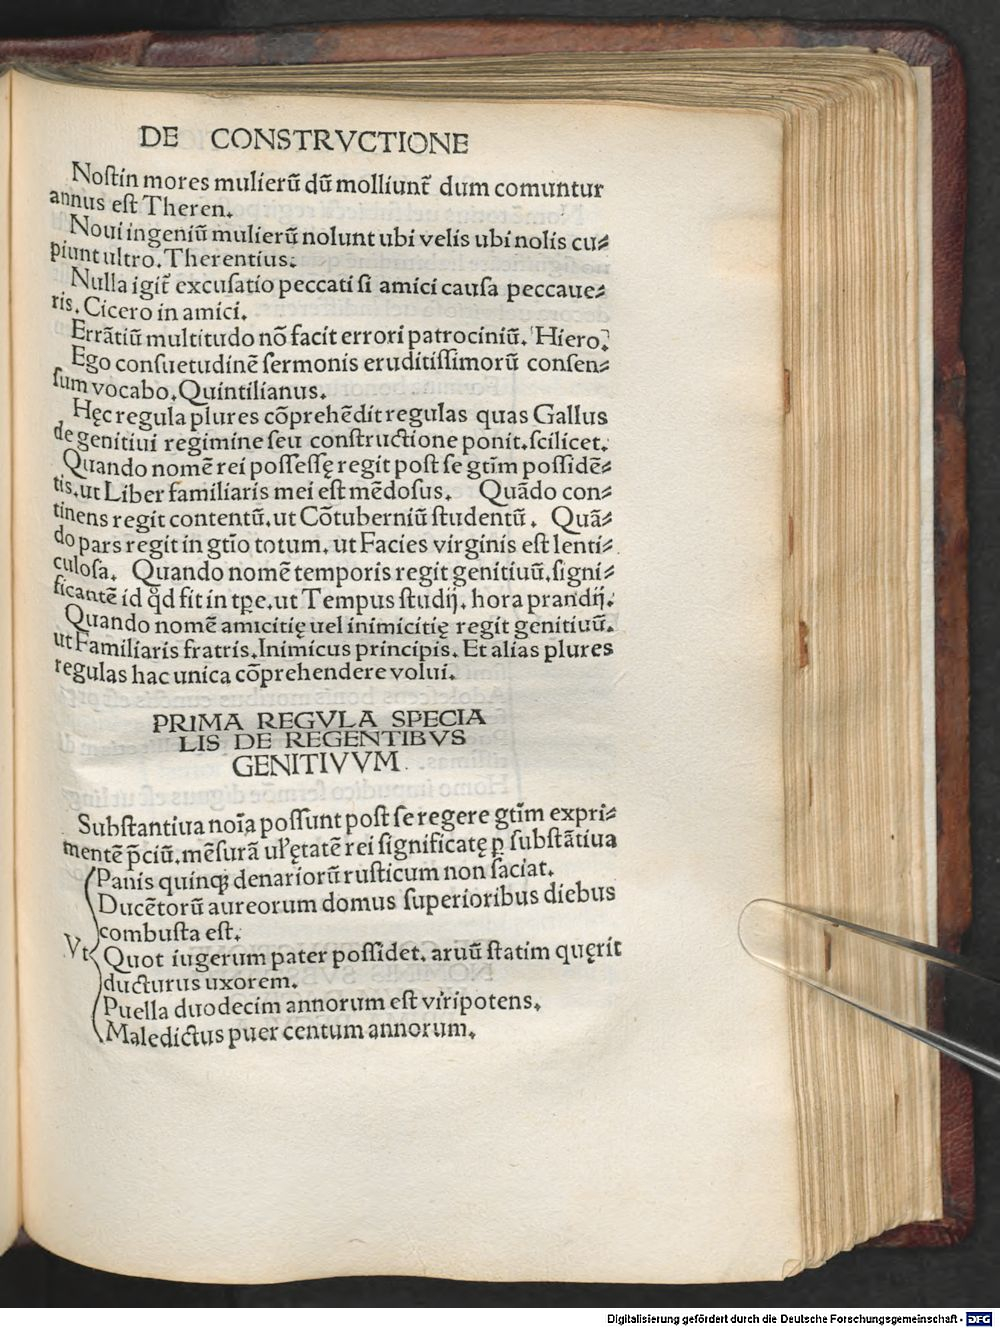 DE CONSTRVCTIONE
Noſtin mores mulierū dū molliunt̄ dum comuntur
annus eſt Theren.
Noui ingeniū mulierū nolunt ubi velis ubi nolis cu⸗
piunt ultro. Therentius.
Nulla igit̄ excuſatio peccati ſi amici cauſa peccaue⸗
ris. Cicero in amici.
Errātiū multitudo nō facit errori patrociniū. Hiero.
Ego conſuetudinē ſermonis eruditiſſimorū conſen⸗
ſum vocabo. Quintilianus.
Hęc regula plures cōprehēdit regulas quas Gallus
de genitiui regimine ſeu conſtructione ponit. ſcilicet.
Quando nomē rei poſſeſſę regit poſt ſe gtīm poſſidē⸗
tis. ut Liber familiaris mei eſt mēdoſus. Quādo con⸗
tinens regit contentū. ut Cōtuberniū ſtudentū. Quā⸗
do pars regit in gtīo totum. ut Facies virginis eſt lenti⸗
culoſa. Quando nomē temporis regit genitiuū. ſigni⸗
ficantē id qd̄ fit in tꝑe. ut Tempus ſtudij. hora prandij.
Quando nomē amicitię uel inimicitię regit genitiuū.
ut Familiaris fratris. Inimicus principis. Et alias plures
regulas hac unica cōprehendere volui.
PRIMA REGVLA SPECIA
LIS DE REGENTIBVS
GENITIVVM.
Subſtantiua noīa poſſunt poſt ſe regere gtīm expri⸗
mentē p̄ciū. mēſurā ul' ętatē rei ſignificatę ꝑ ſubſtātiua
Panis quinqꝫ denariorū ruſticum non ſaciat.
Ducētorū aureorum domus ſuperioribus diebus
combuſta eſt.
Vt Quot iugerum pater poſſidet. aruū ſtatim quęrit
ducturus uxorem.
Puella duodecim annorum eſt viripotens.
Maledictus puer centum annorum.
Digitalisierung gefördert durch die Deutsche Forschungsgemeinschaft - DFG